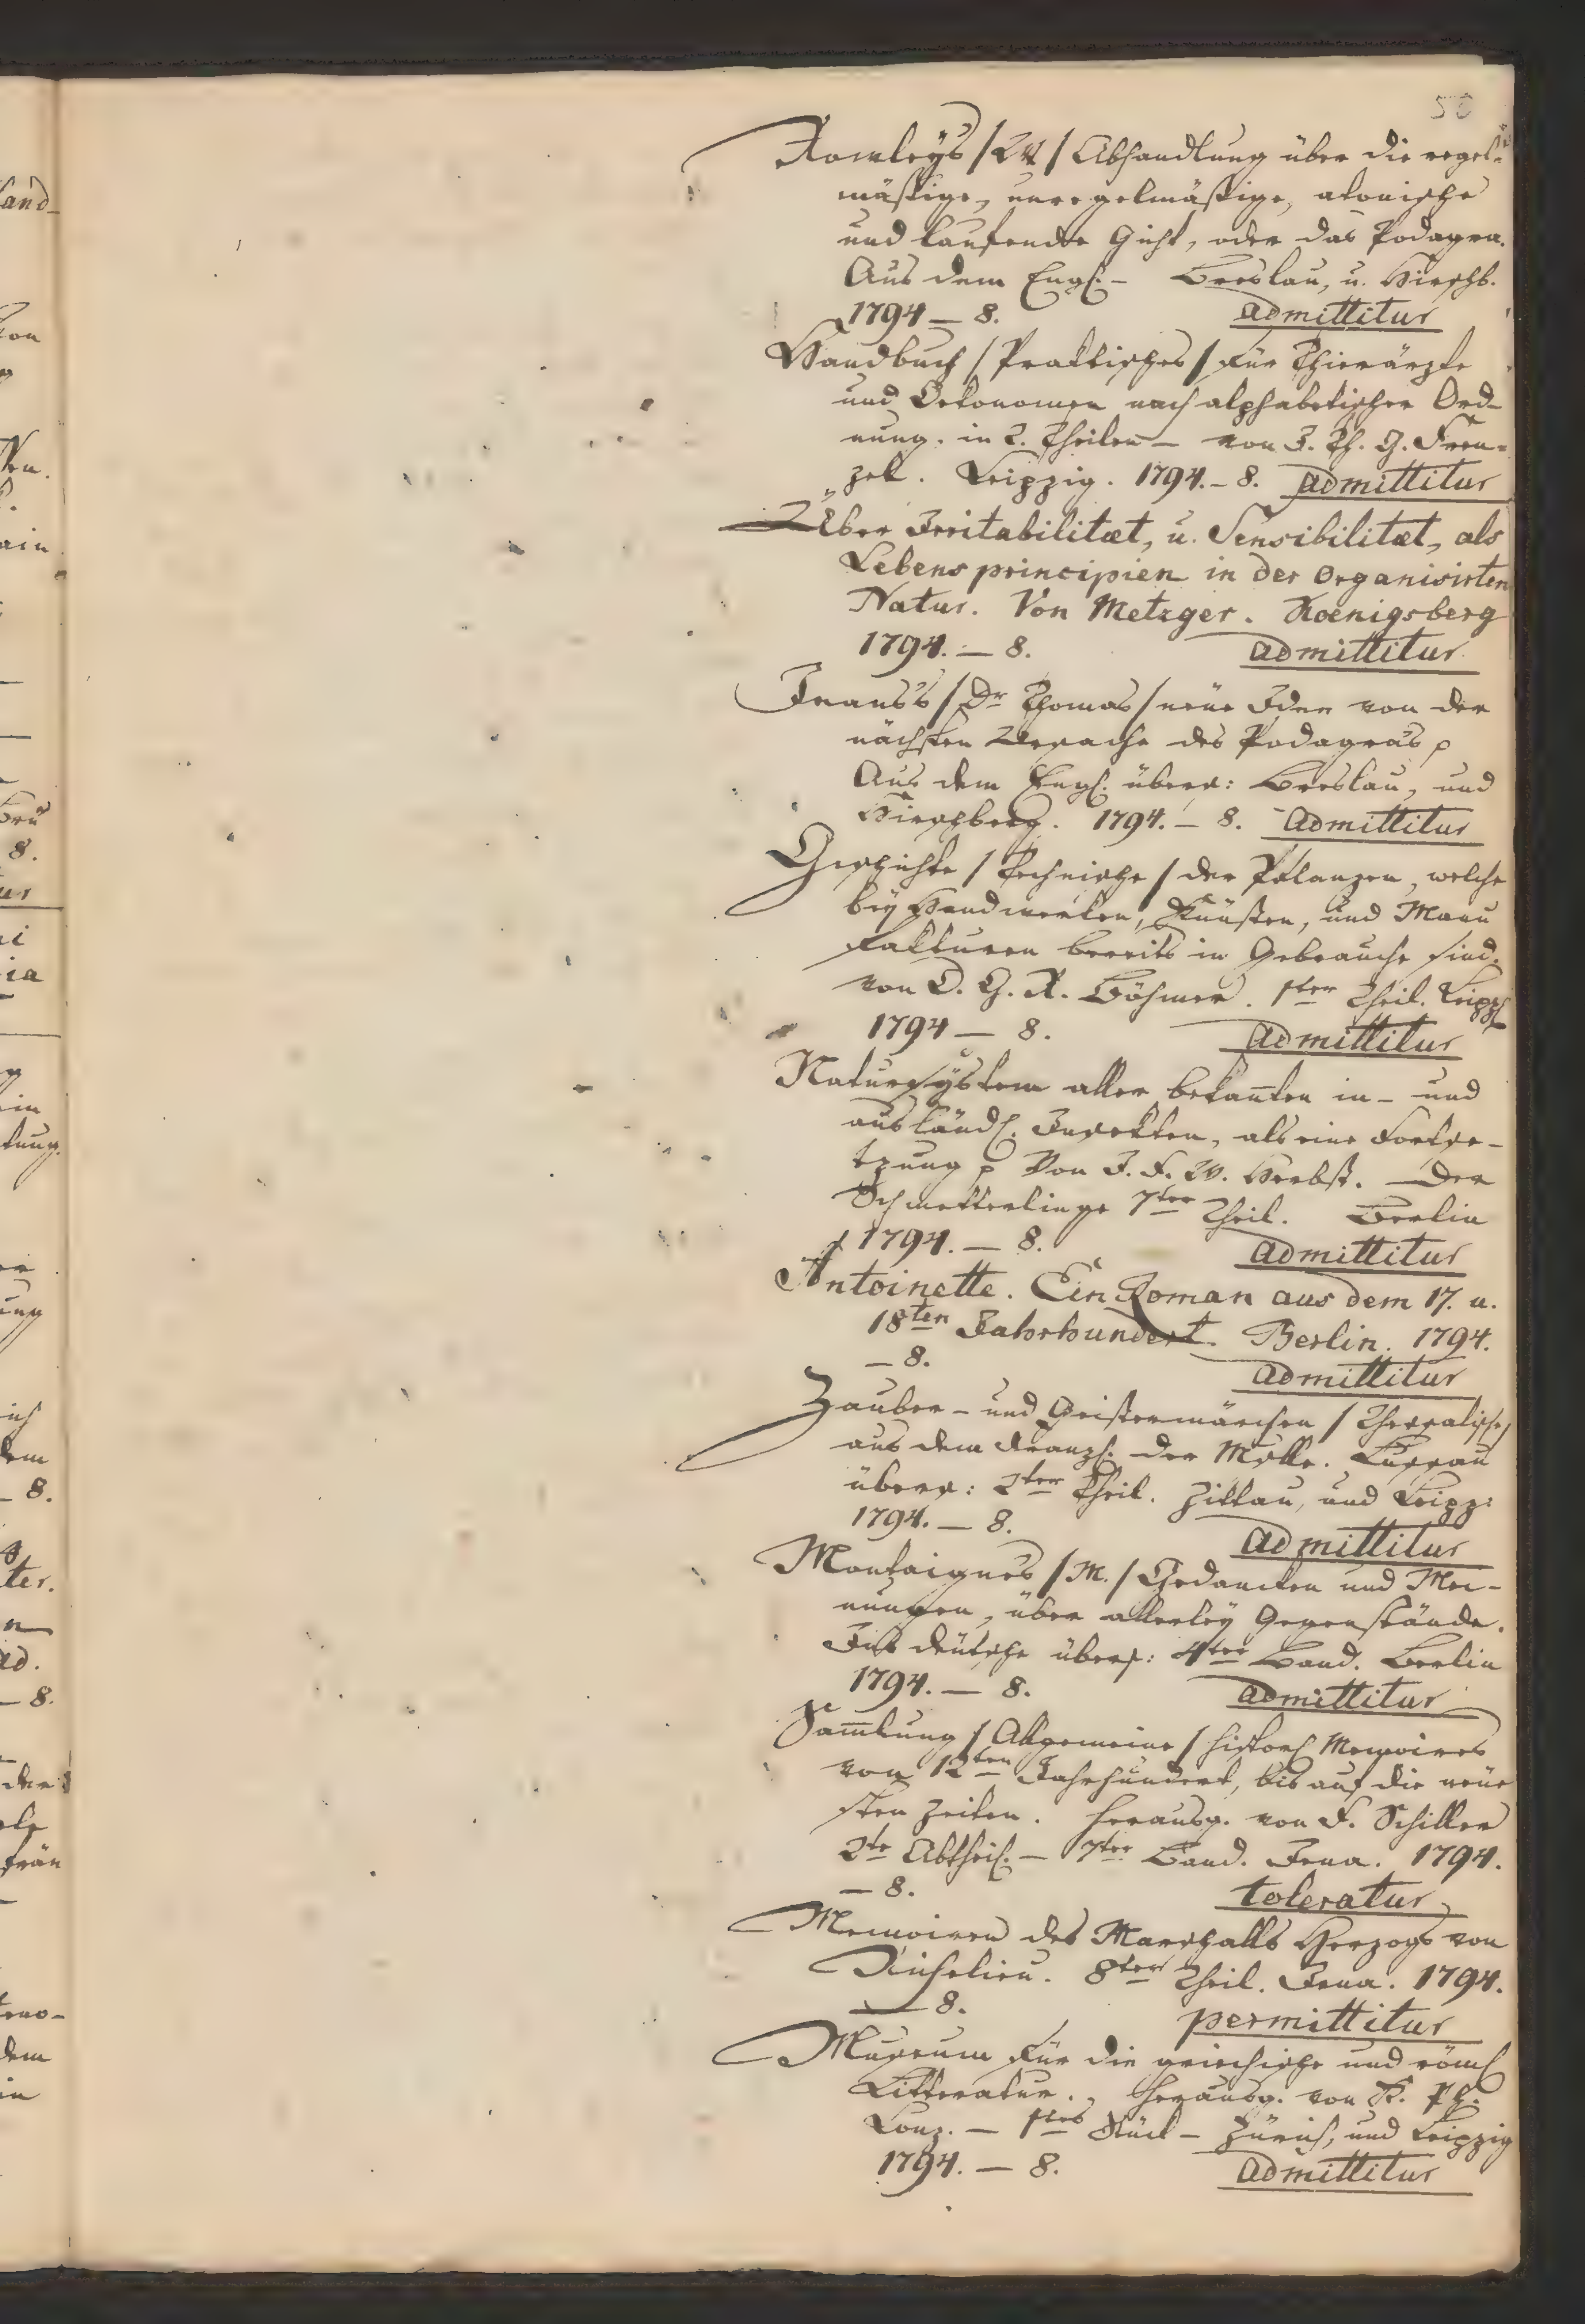 Rowleys /W./ Abhandlung über die regel=
mäßige, unregelmäßige, atonische
und laufende Gicht, oder das Podagra.
Aus dem Engl. – Breslau, u. Hirschb.
1794 – 8. admittitur
Handbuch / Praktisches / für Thierärzte
und Oekonomen nach alphabetischer Ord-
nung. in 2. Theilen – von J. Th. G. Fren=
zel. Leipzig. 1794. – 8. admittitur
Über Irritabilitæt, u. Sensibilitæt, als
Lebensprincipien in der organisirten
Natur. Von Metzger. Koenigsberg
1794. – 8. admittitur
Jeans's / Dr Thomas / neue Idee von der
nächsten Ursache des Podagra's p
Aus dem Engl. übers: Breslau, und
Hirschberg. 1794. – 8. admittitur
Geschichte / Technische / der Pflanzen, welche
bey Handwerken, Künsten, und Manu
fakturen bereits in Gebrauche sind.
von D. G. R. Böhmer. 1ter Theil. Leipz
1794 – 8. admittitur
Natursystem aller bekañten in- und
ausländ. Insekten, als eine Fortse-
tzung p Von J. F. W. Herbst. – Der
Schmetterlinge 7ter Theil. Berlin
1794. – 8. admittitur
Antoinette. Ein Roman aus dem 17. u.
18ten Jahrhundert. Berlin. 1794.
– 8. admittitur
Zauber- und Geistermärchen / Thessalische/
aus dem Franz. der Mselle. Lussan
übers: 2ter Theil. Zittau, und Leipz:
1794. – 8. admittitur
Montaigne's / M. / Gedancken und Mei-
nungen, über allerley Gegenstände.
Ins deutsche übers: 4ter Band. Berlin
1794. – 8. admittitur
Sam̄lung / Allgemeine / histor. Memoires
vom 12ten Jahrhundert, bis auf die neue
sten Zeiten. herausg. von F. Schiller
2te Abtheil. – 7ter Band. Jena. 1794.
– 8. toleratur
Memoiren des Marschalls Herzogs von
Richelieu. 8ter Theil. Jena. 1794.
– 8. permittitur
Museum für die griechische und röm.
Litteratur. herausg. von K. Ph.
Conz. – 1tes Stück – Zürich, und Leipzig
1794. – 8. admittitur